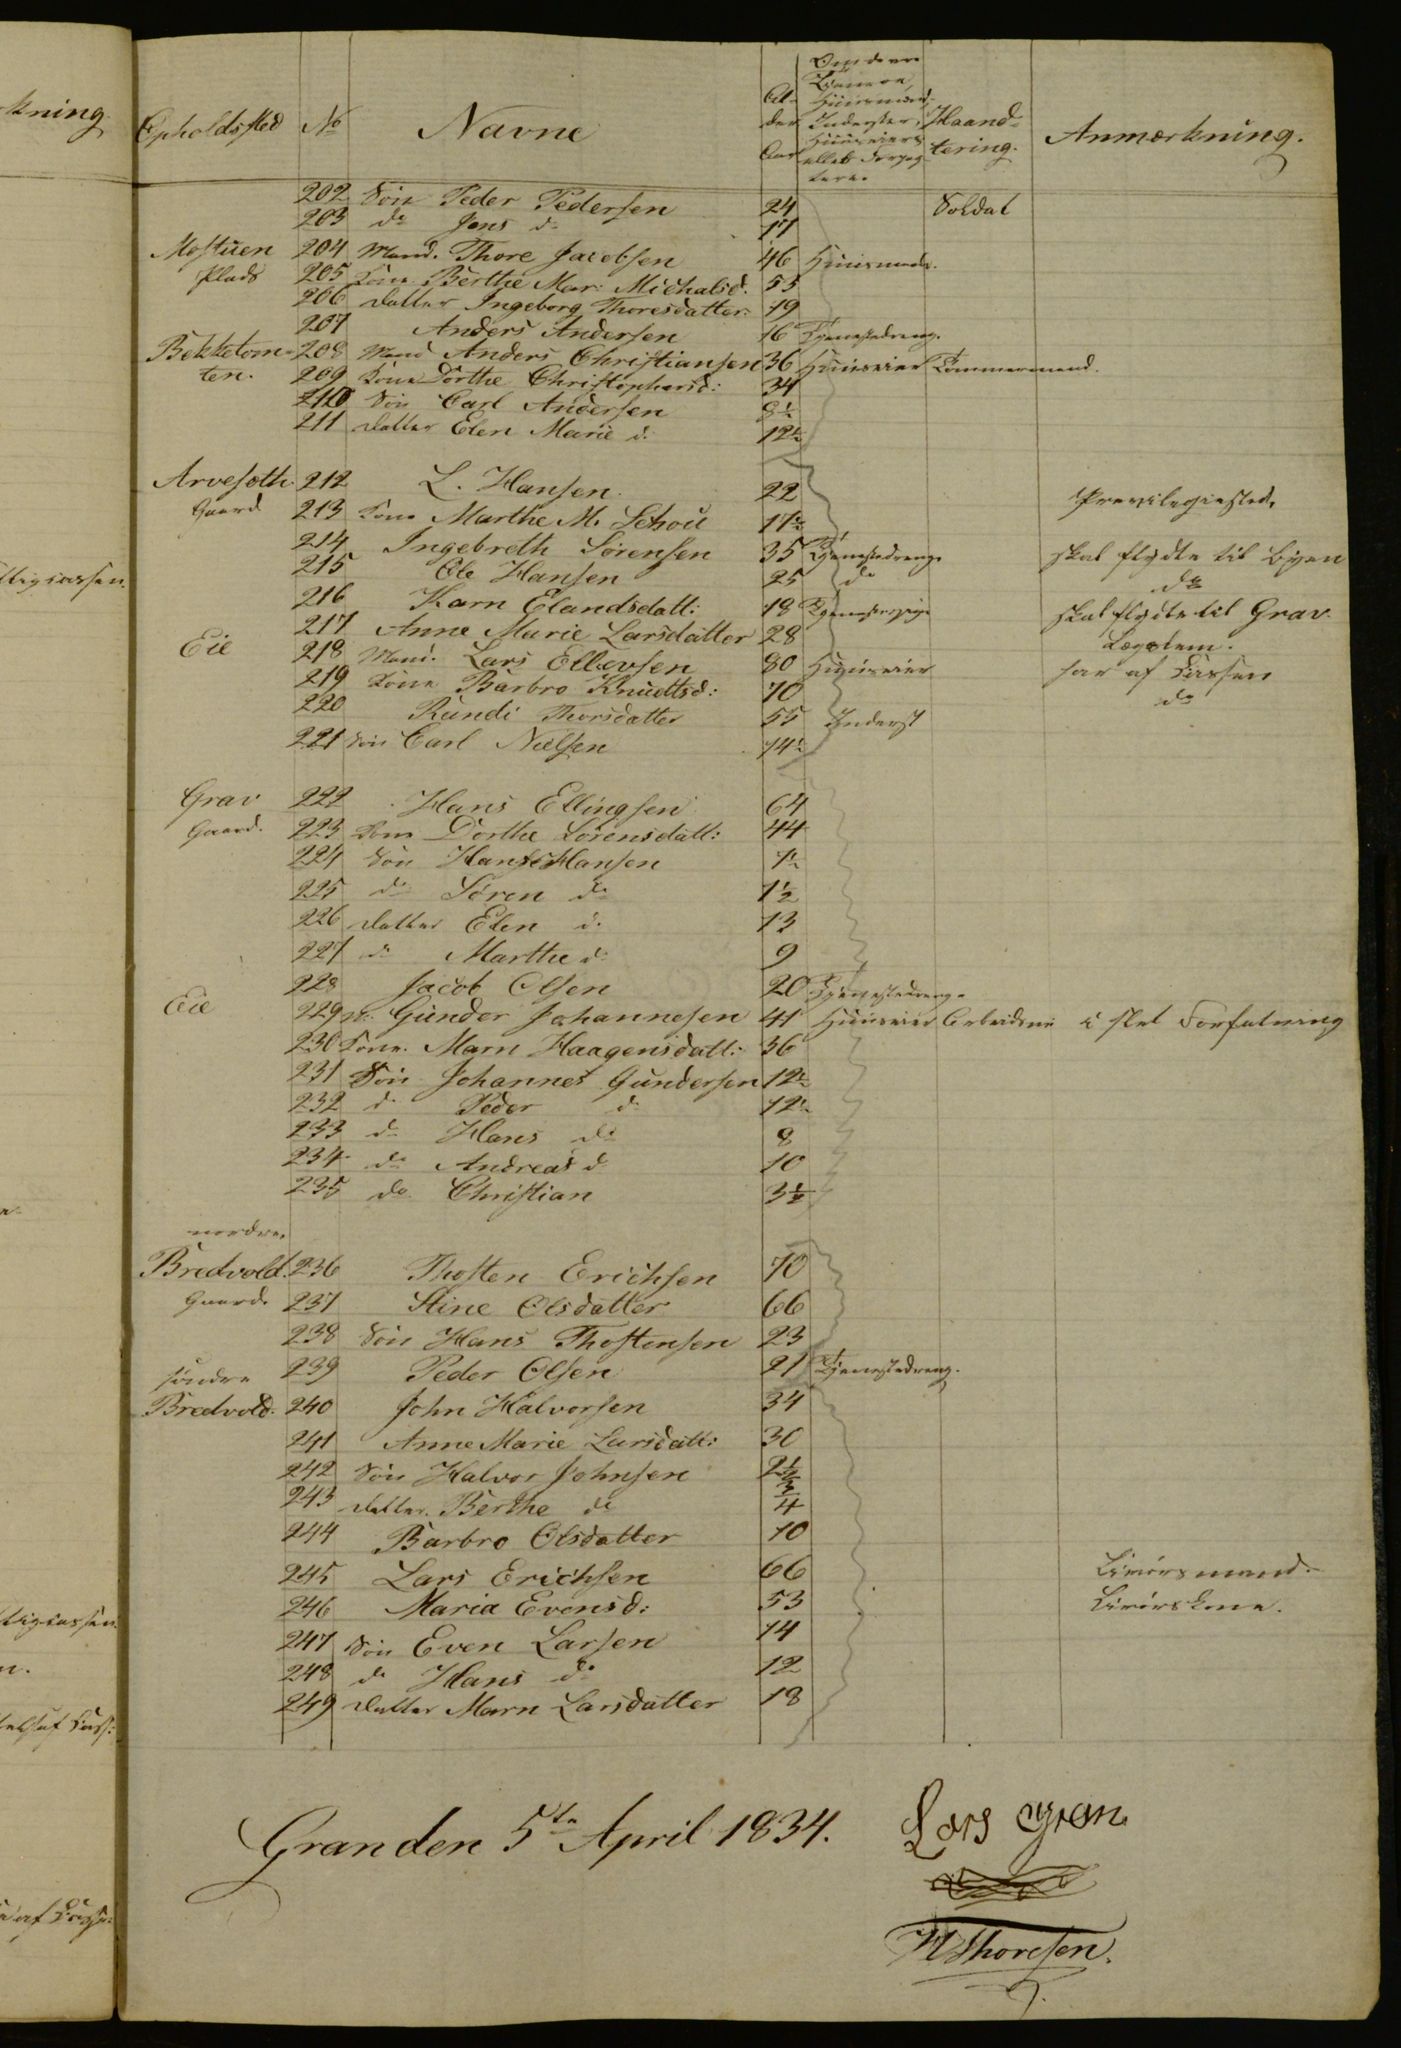 kning.
Opholdsted No Navne Al- der Aar Om de ere Tjenere, Huusmænd, Inderster, Huuseiere eller Forpagtere. Haand- tering. Anmærkning.
202 Søn Peder Pedersen 24 Soldat
203 do Jens do 17
Mostuen 204 Mand. Thore Jacobsen 46 Huusmand.
Plads 205 Kone Berthe Mar: Michalsd. 53
206 Datter Ingeborg Thoresdatter 19
207 Anders Andersen 16 Tjenestedreng.
Bekketom- 208 Mand Anders Christiansen 36 Huuseier Tømmermand.
ten. 209 Kone Dorthe Christophersd: 34
210 Søn Carl Andersen 8½
211 Datter Elen Marie d: 12½
Arvesøth 212 L. Hansen 22 Previlegiested.
Gaard 213 Kone Marthe M. Schou 17½
214 Ingebreth Sørensen 35 Tjenestedreng skal flødte til byen
215 Ole Hansen 25 do do
216 Karn Elandsdatt: 18 Tjenestepige skal flødte til Grav
217 Anne Marie Larsdatter 28 Lægdlem.
Eie 218 Mand. Lars Ellevsen 80 Huuseier har af Kassen
219 Kone Barbro Knudtsd: 70 do
220 Randi Thorsdatter 55 Inderst
221 Søn Carl Nielsen 14½
Grav 222 Hans Ellingsen 64
Gaard. 223 Kone Dorthe Sørensdatt: 44
224 Søn Hans Hansen 7½
225 do Søren do 1½
226 Datter Elen d. 13
227 d: Marthe d: 9
228 Jacob Olsen 20 Tjenestedreng.
Eie 229 M: Gunder Johannesen 41 Huuseier Arbeidsm i slet Forfatning
230 Kone. Marn Haagensdatt: 36
231 Søn Johannes Gundersen 12½
232 d: Peder d: 12½
233 d: Hans do 8
234 do Andreas d: 10
235 do. Christian 3½
nordre
Bredvold. 236 Thosten Erichsen 70
Gaard. 237 Stine Olsdatter 66
238 Søn Hans Thostensen 23
søndre 239 Peder Olsen 21 Tjenestedreng.
Bredvold. 240 John Halvorsen 34
241 Anne Marie Larsdatt: 30
242 Søn Halvor Johnsen 2½
243 Datter. Berthe do ¾
244 Barbro Olsdatter 10
245 Lars Erichsen 66 Livørsmand.
246 Maria Evensd: 53 Livørskone.
247 Søn Even Larsen 14
248 do Hans do 12
249 Datter Marn Larsdatter 18
Gran den 5te April 1834.
Lars Gran
H Thoresen.